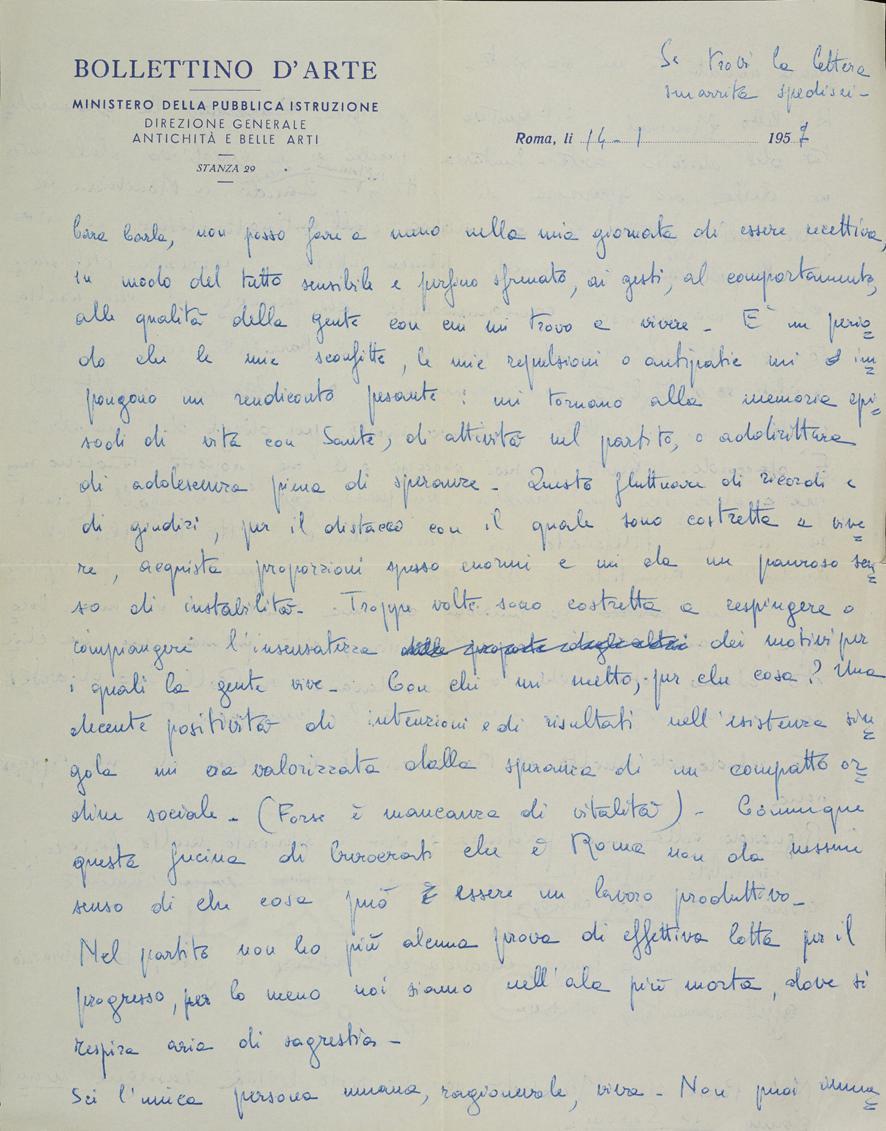 BOLLETTINO D'ARTE
MINISTERO DELLA PUBBLICA ISTRUZIONE
DIREZIONE GENERALE
ANTICHITÀ E BELLE ARTI
STANZA 29
Se trovi la lettera
smarrita spedisci -
Roma, li 14 - 1 1957
Cara Carla, non posso fare a meno nella mia giornata di essere recettiva,
in modo del tutto sensibile e perfino sfrenato, ai gesti, al comportamento,
alle qualità della gente con cui mi trovo a vivere - E' un perio=
do che le mie sconfitte, le mie repulsioni o antipatie mi im=
pongono un rendiconto pesante : mi tornano alla memoria epi=
sodi di vita con Sante, di attività nel partito, o addirittura
di adolescenza piena di speranze - Questo fluttuare di ricordi e
di giudizi, per il distacco con il quale sono costretta a vive=
re, acquista proporzioni spesso enormi e mi da un pauroso sen=
so di instabilità - Troppe volte sono costretta a respingere o
compiangere l'insensatezza dei motivi per
i quali la gente vive - Con chi mi metto, per che cosa? Una
decente positività di intenzioni e di risultati nell'esistenza sin=
gola mi era valorizzata dalla speranza di un compatto or=
dine sociale - (Forse è mancanza di vitalità) - Comunque
questa fucina di burocrati che è Roma non da nessun
senso di che cosa può essere un lavoro produttivo -
Nel partito non ho più alcuna prova di effettiva lotta per il
progresso, per lo meno noi siamo nell'ala più morta, dove si
respira aria di sagrestia -
Sei l'unica persona umana, ragionevole, viva - Non puoi imma=